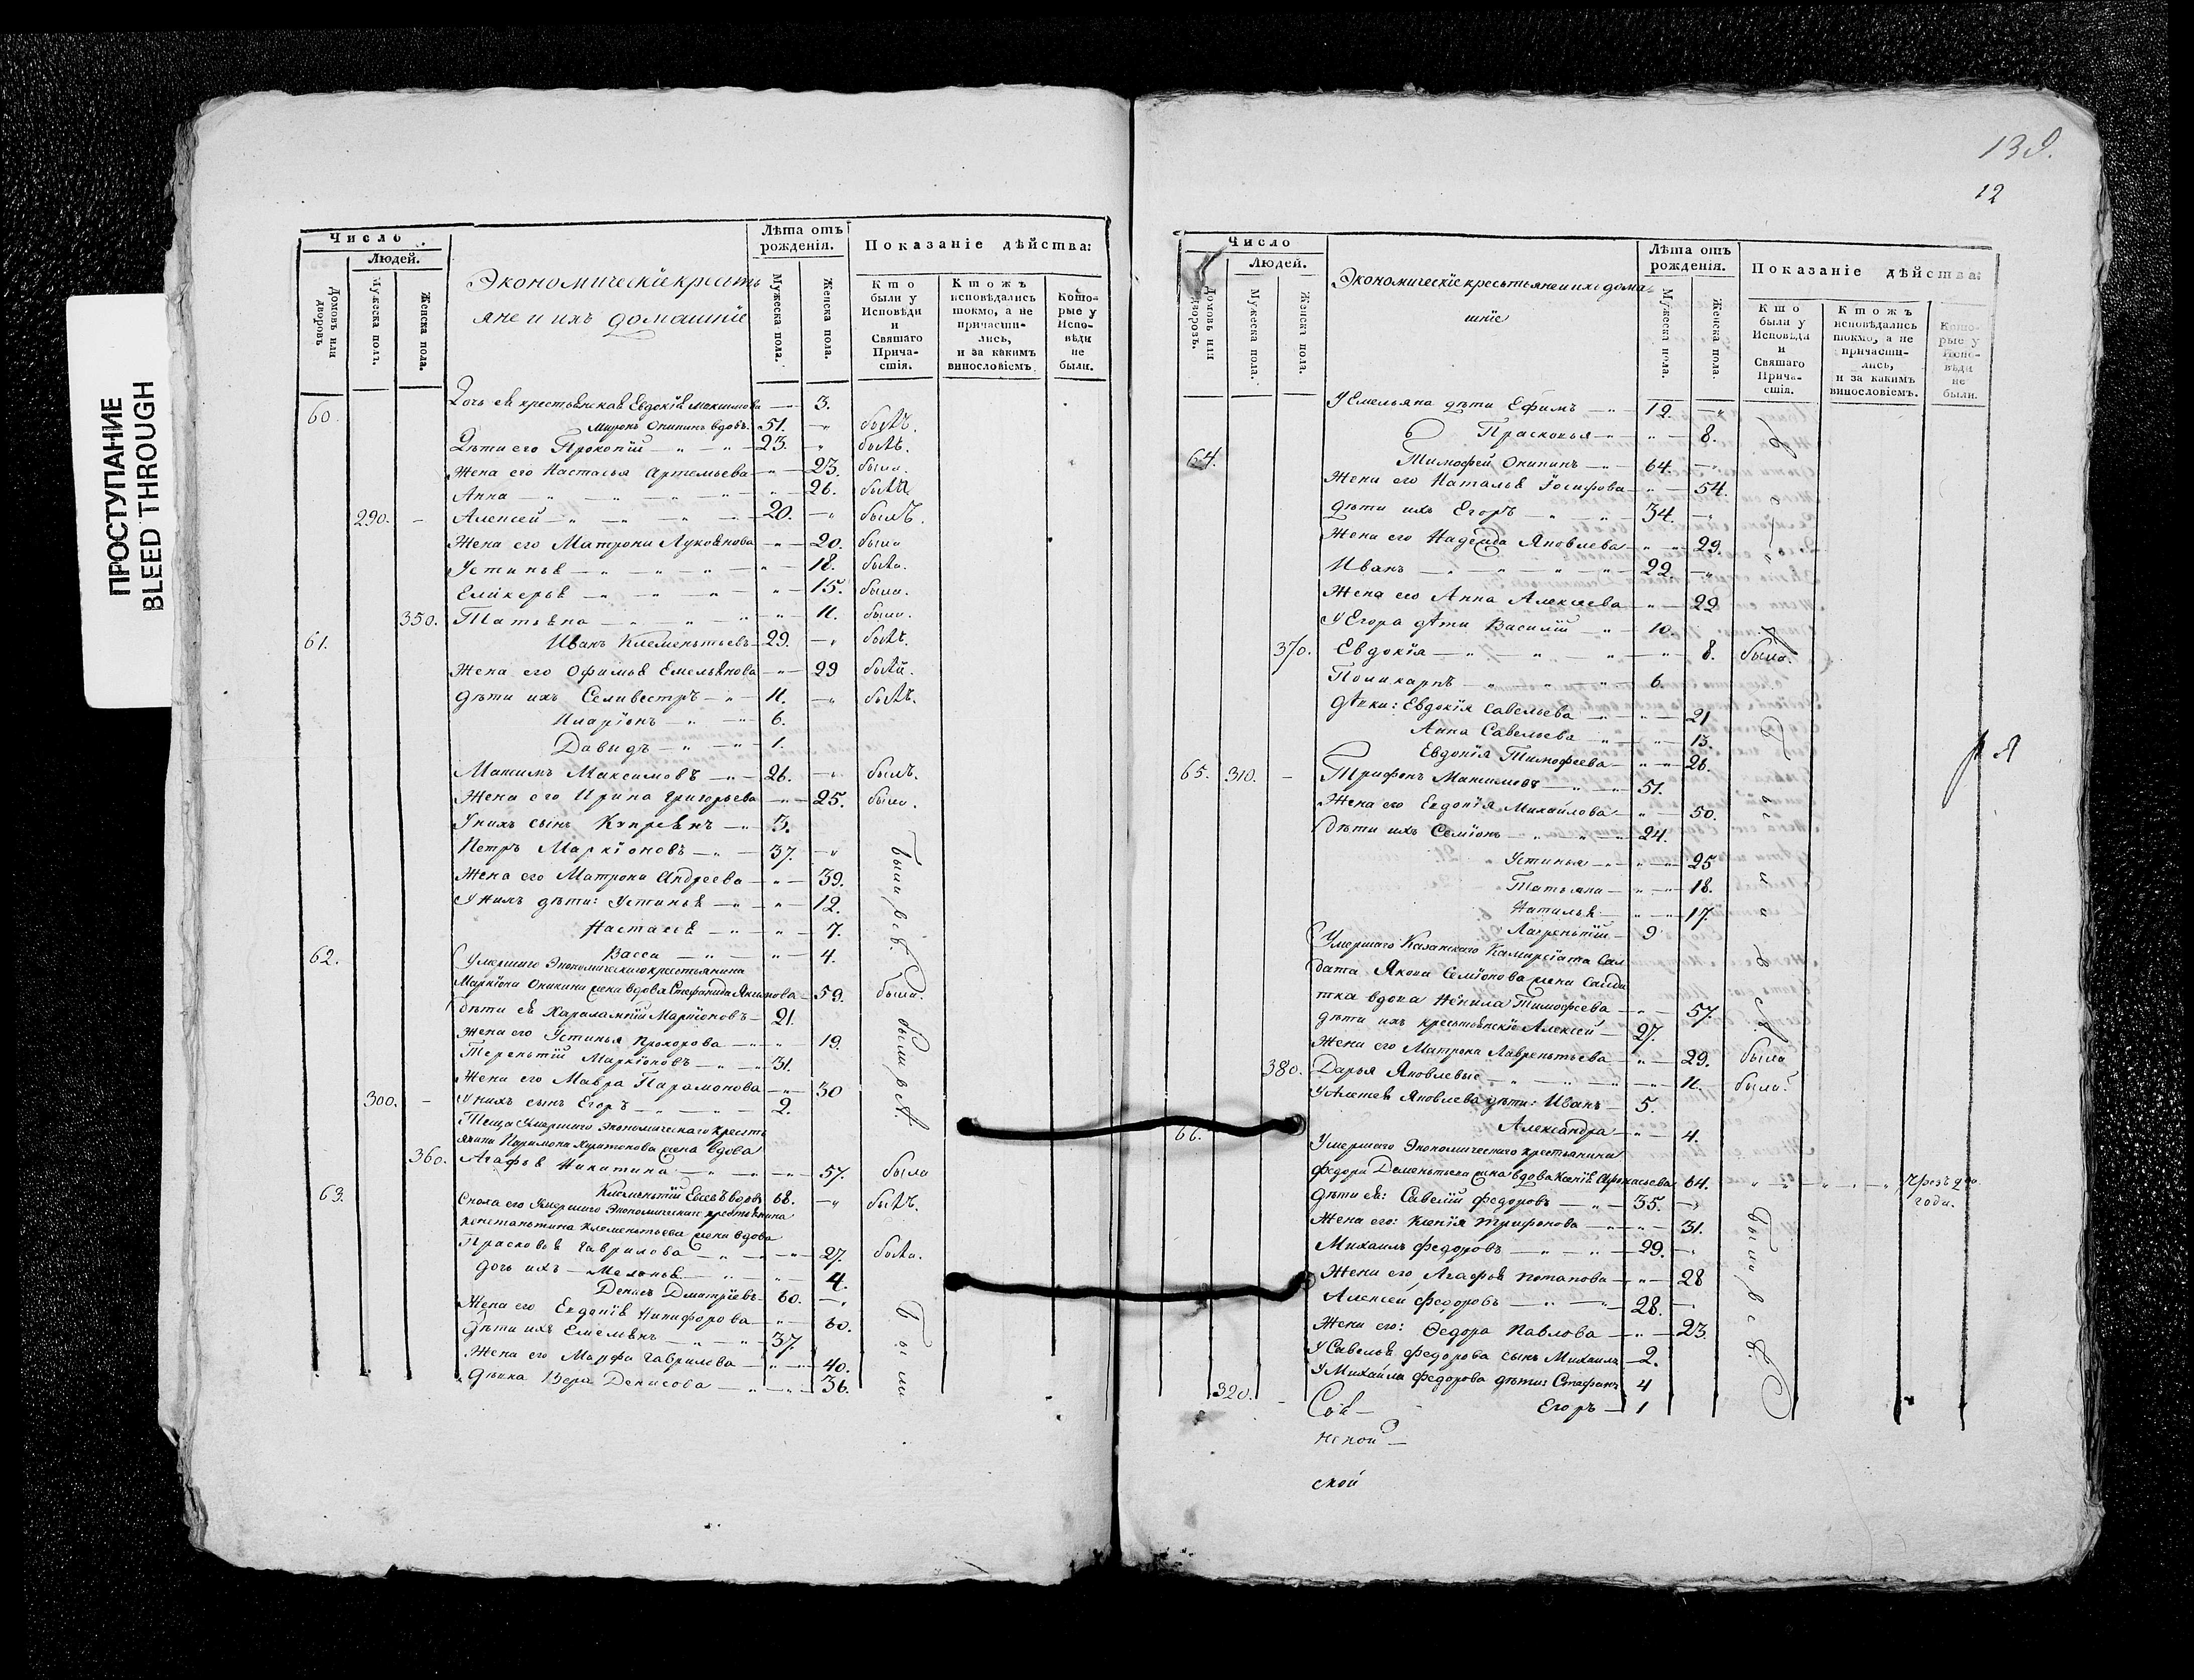 ПРОСТУПАНИЕ
BLEED THROUGH
Число
Людей.
Домовъ или дворовъ
Мужеска полъ.
Женска пола.
Экономическіе крестъ
яне и ихъ домашніе
Лѣта отъ рожденія.
Мужеска пола.
Женска пола.
Показаніе дѣйства:
Кто были у Исповѣди и Святаго Причастія.
Ктожъ исповѣдались токмо, а не причастились, и за какимъ винословіемъ
Которые у Исповѣди не были.
Дочь ея крестьянская Евдокія Максимова — 3.
60. Миронъ Оникинъ вдовъ. 51. былъ.
Дѣти его Прокопій — 23. былъ.
Жена его Настасья Артемьева — 23. была.
Анна — 26. была
290. Алексей — 20. былъ.
Жена его Матрона Лукоянова — 20. была
Устинья — 18. была.
Гликерья — 15. была.
350. Татьяна — 11. была.
61. Иванъ Клементьевъ — 29. былъ.
Жена его Офимья Емельянова — 29 была.
дѣти ихъ Селивестръ — 11. былъ.
Иларіонъ — 6.
Давыдъ — 1.
Максимъ Максимовъ — 26. былъ.
Жена его Ирина Григорьева — 25. была.
У нихъ сынъ Купреянъ — 3.
Петръ Маркіоновъ — 37.
Жена его Матрона Андреева — 39.
У нихъ дѣти: Устинья — 12.
Настасья — 7.
Васса — 4.
Были всѣ.
62. Умершаго Экономическаго крестьянина
Маркіона Оникина жена вдова Стефанида Якимова — 59. была.
Дѣти ея Харалампій Маркіоновъ — 21.
Жена его Устинья Прохорова — 19.
Терентій Маркіоновъ — 31.
Жена его Мавра Парамонова — 30
300. У нихъ сынъ Егоръ — 2.
были всѣ
Теща Умершаго Экономическаго кресть
янина Парамона Харитонова жена вдова
360. Агафья Никитина — 57. была
63. Климентій Евсевъ вдовъ 68. былъ.
Сноха его Умершаго Экономическаго крестьянина
Констанътина Клементьева жена вдова
Прасковья Гаврилова — 27. была.
дочь ихъ — Меланья — 4.
Денисъ Дмитріевъ — 60.
Жена его Евдокія Никифорова — 60.
Дѣти ихъ Емельянъ — 37.
Жена его Марфа Гаврилова — 40.
дѣвка Вера Денисова — 36.
Были
139.
12
Число
Людей.
Домовъ или дворовъ.
Мужеска пола.
Женска пола.
Экономическіе крестьяне и ихъ дома-
шніе
Лѣта отъ рожденія.
Мужеска пола.
Женска пола.
Показаніе дѣйства:
Кто были у Исповѣди и Святаго Причастія.
Ктожъ исповѣдались токмо, а не причастились, и за какимъ винословіемъ.
Которые у Исповѣди не были.
У Емельяна дѣти Ефимъ — 12.
Прасковья — 8.
64. Тимофей Оникинъ — 64.
Жена его Наталья Іосифова — 54.
Дѣти ихъ Егоръ — 34.
Жена его Надежда Яковлева — 29.
Иванъ — 22.
Жена его Анна Алексеева — 22
У Егора дѣти Василій — 10.
370. Евдокія — 8. была.
Поликарпъ — 6.
дѣвки: Евдокія Савельева — 21
Анна Савельева — 13.
Евдокія Тимофеева — 26.
65. 310. Трифонъ Максимовъ — 51.
Жена его Евдокія Михайлова — 50.
Дѣти ихъ Семіонъ — 24.
Устинья — 25
Татьяна — 18.
Наталья — 17.
Лаврентій — 9
Умершаго Казанскаго Камирсіата Сал
дата Якова Семіонова жена Салда
тка вдова Ненила Тимофеева — 57.
дѣти ихъ крестьянскіе Алексей — 27.
Жена его Матрона Лаврентьева — 29. была
380. Дарья Яковлевые — 11. была.
У Алексея Яковлева дѣти: Иванъ — 5.
Александра — 4.
66. Умершаго Экономическаго крестьянина
Федора Дементьева жена вдова Ксенія Афонасьева 64. чрезъ два
года.
Дѣти ея: Савелій Федоровъ — 35.
Жена его: Ксенія Трифонова — 31.
Михаилъ Федоровъ — 29.
Жена его Агафья Потапова — 28
Алексей Федоровъ — 28.
Жена его: Федора Павлова — 23.
У Савелья Федорова сынъ Михаилъ — 2.
У Михаила Федорова дѣти: Стефанъ 4
320. Егоръ — 1
Были всѣ.
Свя-
ской